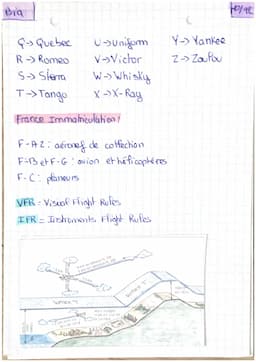 Bia
Q → Quebec U → Uniform Y → Yankee
R → Romeo V → Victor Z → Zoulou
S → Sierra W → Whisky
T → Tango X → X-Ray
France Immatriculation!
F-AZ : aéronef de collection
F-B et F-G : avion et hélicoptères
F-C : planeurs
VFR = Visual Flight Rules
IFR = Instruments Flight Rules